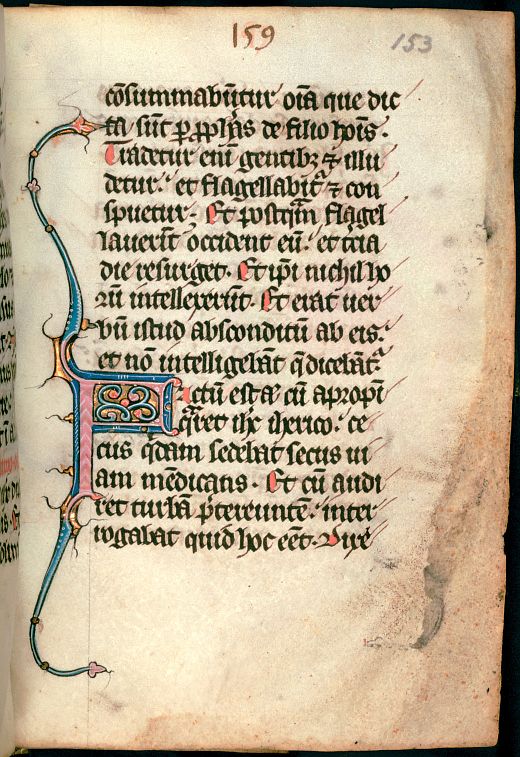 159
153
cōsummabūtur oīa que dic
ta sūt ꝑ ꝓph̄as de filio hoīs.
Tradetur enī gentibꝫ ⁊ illu
detur. et flagellabit᷑ ⁊ con
spuetur. Et postqͣ̄m flagel
lauerīt occident eū. et tͨia
die resurget. Et ip̄i nichil ho
rū intellexerūt. Et erat uer
bū istud absconditū ab eis.
et nō intelligebāt q̄ dicebāt᷑.
Factū est aͣ cū apropī
q̄ret ih̄c iherico. ce
cus q̄dam sedebat secus ui
am mēdicans. Et cū audi
ret turbā p̄tereuntē. inter
rogabat quid hoc eēt. Dixe